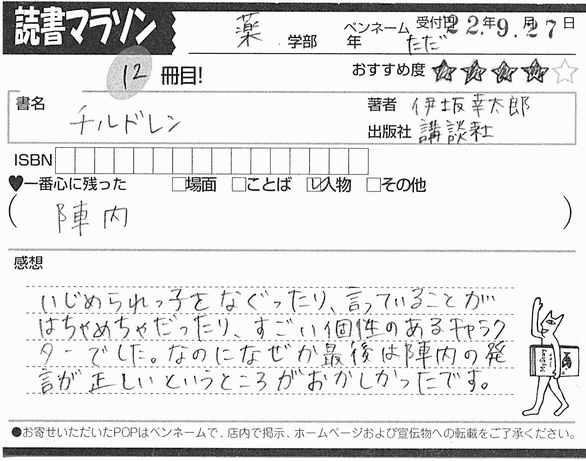 読書マラソン
薬 学部 年 ペンネーム ただ 受付日 22年9月27日
12 冊目! おすすめ度 ★★★★☆
書名 チルドレン
著者 伊坂幸太郎
出版社 講談社
ISBN
♥一番心に残った □場面 □ことば ☑人物 □その他
( 陣内 )
感想
いじめられっ子をなぐったり、言っていることが
はちゃめちゃだったり、すごい個性のあるキャラク
ターでした。なのになぜか最後は陣内の発
言が正しいというところがおかしかったです。
●お寄せいただいたPOPはペンネームで、店内で掲示、ホームページおよび宣伝物への転載をご了承ください。